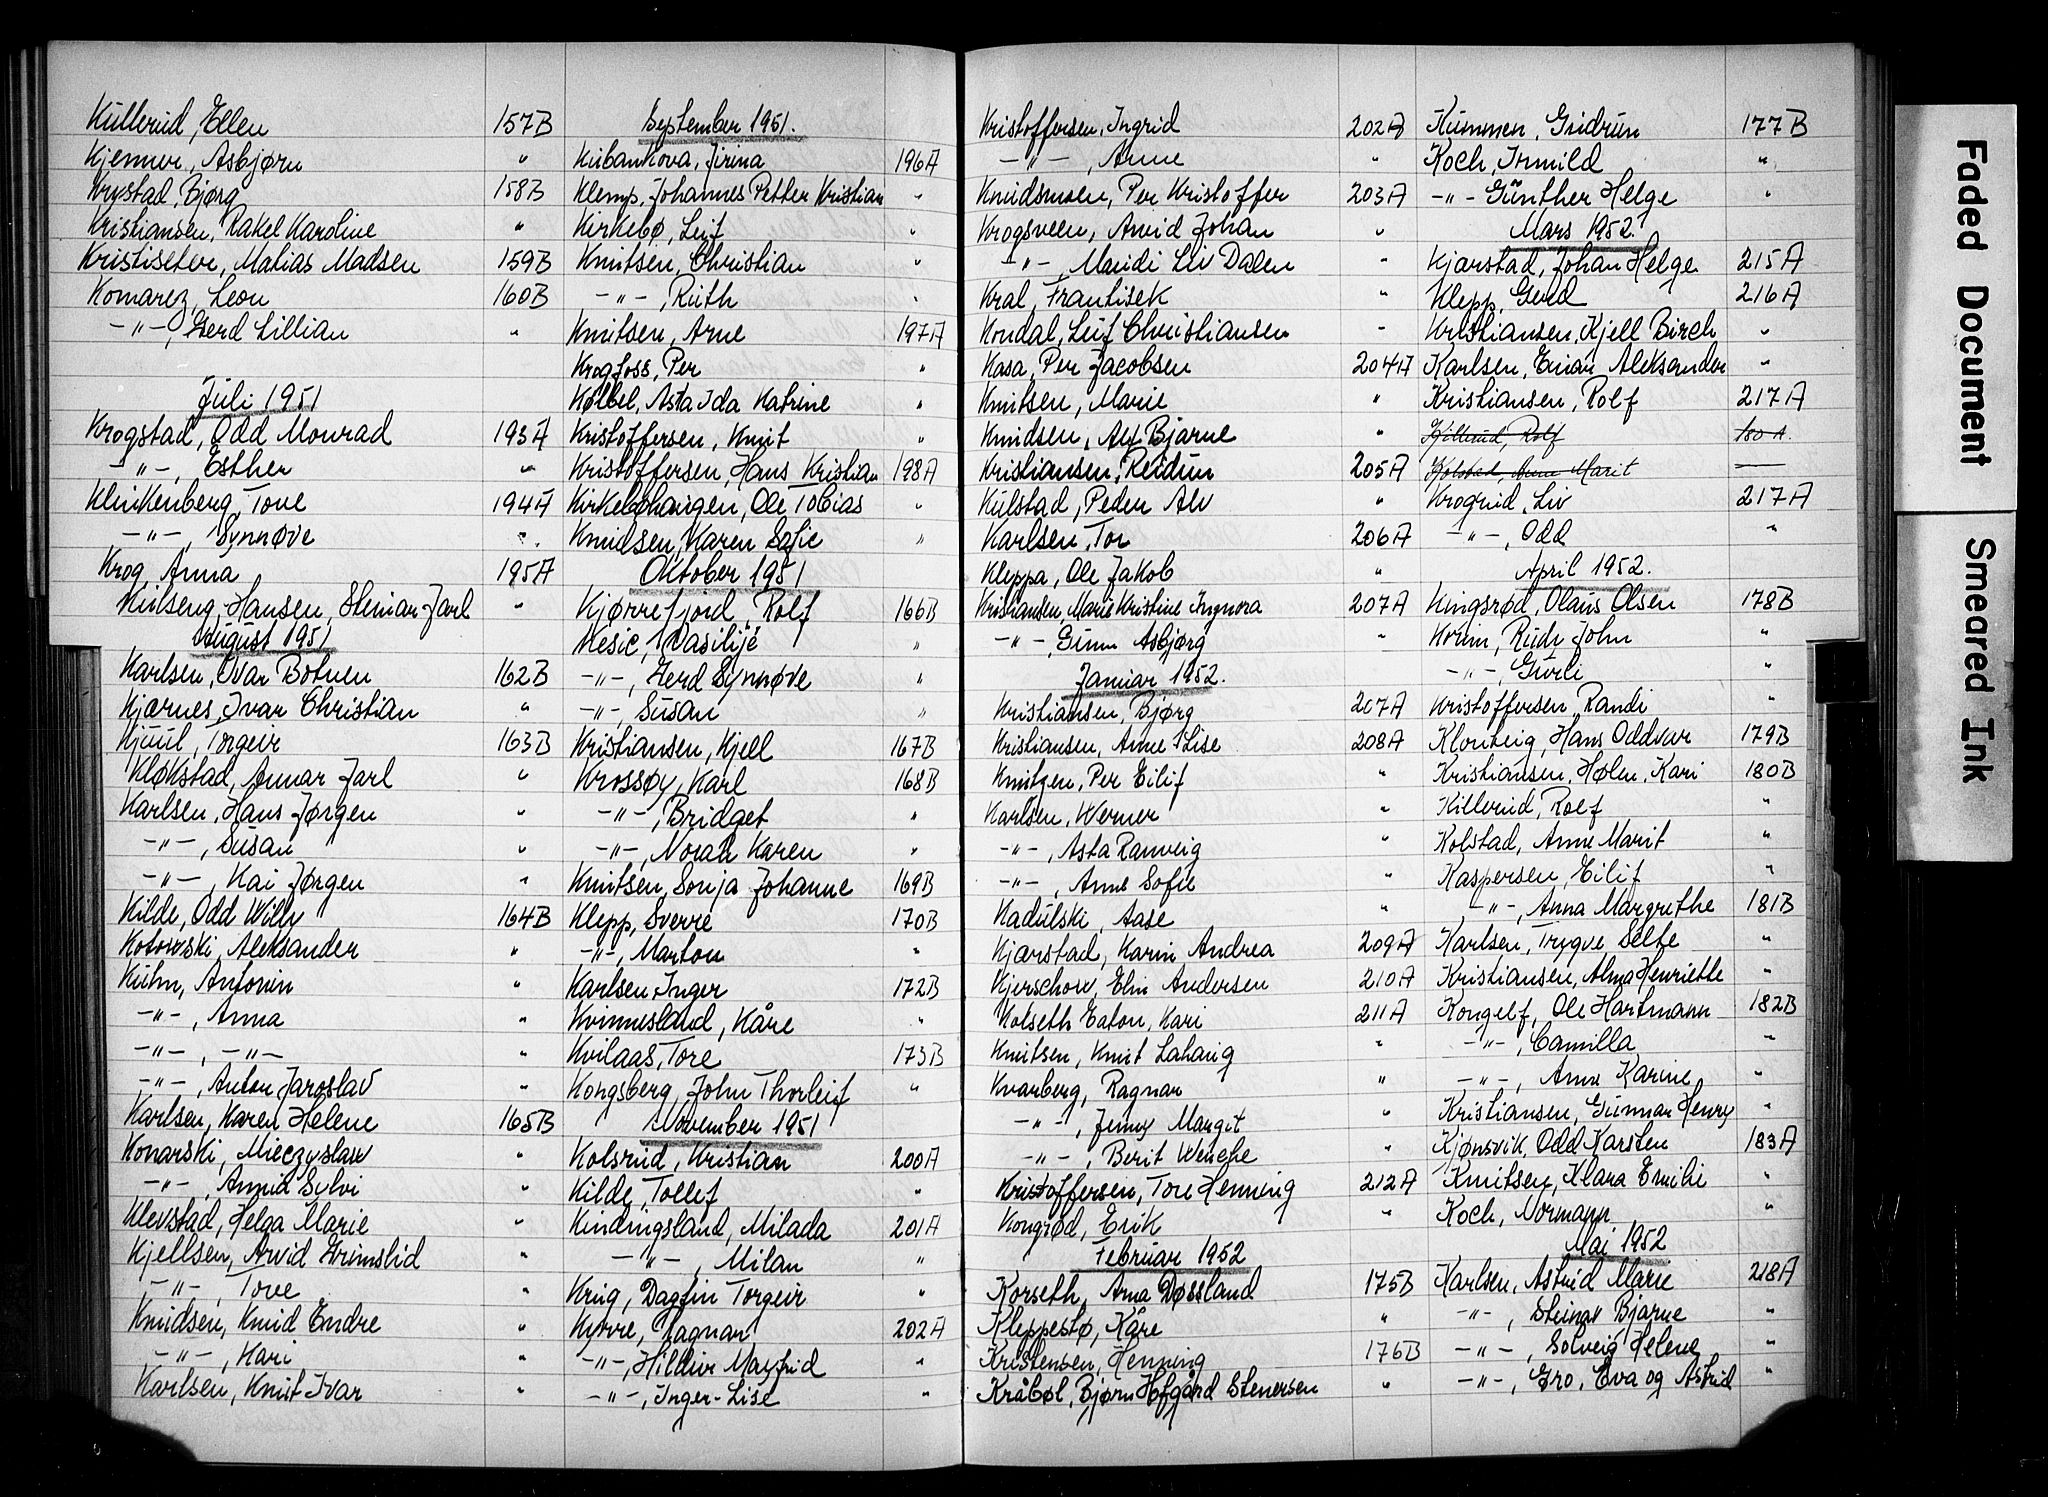 Kullerud, Ellen 157B
Kjenner, Asbjørn "
Krystad, Bjørg 158B
Kristiansen, Rakel Karoline "
Kristiseter, Matias Madsen 159B
Komarez, Leon 160B
-"-, Gerd Lillian "
Juli 1951
Krogstad, Odd Monrad 193A
-"-, Esther "
Klinkenberg, Tove 194A
-"-, Synnøve "
Krog, Anna 195A
Kulseng, Hansen, Steinar Jarl "
August 1951
Karlsen, Ovar Botnen 162B
Kjærnes, Ivar Christian "
Kjuul, Torgeir 163B
Kløkstad, Annar Jarl "
Karlsen, Hans Jørgen "
-"-, Susan "
-"-, Kai Jørgen "
Kilde, Odd Willy 164B
Kotowski, Aleksander "
Kuhn, Antonin "
-"-, Anna "
-"-, -"- "
-"-, Anton Jaroslav "
Karlsen, Karen Helene 165B
Konarski, Mieczyslaw "
-"-, Annid Sylvi "
Klevstad, Helga Marie "
Kjellsen, Arvid Grimslid "
-"-, Tove "
Knudsen, Knud Endre "
-"-, Kari "
Karlsen, Knut Ivar "
September 1951.
Kubankova, Jirina 196A
Klemp, Johannes Petter Kristian "
Kirkebø, Leif "
Knutsen, Christian "
-"-, Ruth "
Knutsen, Arne 197A
Krogfoss, Per "
Kølbel, Asta Ida Katrine "
Kristoffersen, Knut "
Kristoffersen, Hans Kristian 198A
Kirkebøhaugen, Ole Tobias "
Knudsen, Karen Sofie "
Oktober 1951
Kjørrefjord, Rolf 166B
Kesic, Vasilije "
-"-, Gerd Synnøve "
-"-, Susan "
Kristiansen, Kjell 167B
Krossøy, Karl 168B
-"-, Bridget "
-"-, Norah Karen "
Knutsen, Sonja Johanne 169B
Klepp, Sverre 170B
-"-, Marton "
Karlsen, Inger 172B
Kvinnesland, Kåre "
Kvilaas, Tore 173B
Kongsberg, John Thorleif "
November 1951
Kolsrud, Kristian 200A
Kilde, Tollef "
Kindingsland, Milada 201A
-"-, Milan "
Krug, Dagfin Torgeir "
Kyrre, Ragnar 202A
-"-, Hildur Mayfrid "
-"-, Inger-Lise "
Kristoffersen, Ingrid 202A
-"-, Anne "
Knudsmoen, Per Kristoffer 203A
Krogsveen, Arvid Johan "
-"-, Maridi Liv Dalen "
Kral, Frantisek "
Kondal, Leif Christiansen "
Kasa, Per Jacobsen 204A
Knutsen, Marie "
Knudsen, Alf Bjarne "
Kristiansen, Reidun 205A
Kulstad, Peder Alv "
Karlsen, Tor 206A
Kleppa, Ole Jakob "
Kristiansen, Marie Kristine Ingnora 207A
-"-, Gunn Asbjørg "
Januar 1952.
Kristiansen, Bjørg 207A
Kristiansen, Anne Lise 208A
Knutzen, Per Eilif "
Karlsen, Werner "
-"-, Asta Ranveig "
-"-, Anne Sofie "
Kadulski, Aase "
Kjærstad, Karin Andrea 209A
Kjerschow, Elin Andersen 210A
Kolseth Eaton, Kari 211A
Knutsen, Knut Lahaug "
Kvarberg, Ragnar "
-"-, Jenny Margit "
-"-, Berit Wenche "
Kristoffersen, Tore Henning 212A
Kongsrød, Erik
Februar 1952
Korseth, Arna Døssland 175B
Kleppestø, Kåre "
Kristensen, Henning 176B
Kråbøl, Bjørn Hofgård Stenersen "
Kummen, Gudrun 177B
Koch, Irmild "
-"- Günther Helge "
Mars 1952.
Kjarstad, Johan Helge 215A
Klepp, Gerd 216A
Kristiansen, Kjell Birch "
Karlsen, Einar Aleksander "
Kristiansen, Rolf 217A
Killerud, Rolf 180A.
Kolstad, Anne Marit —
Krogrud, Liv 217A
-"-, Odd "
April 1952.
Kingsrød, Olaus Olsen 178B
Krum, Rudi John "
-"-, Gurli "
Kristoffersen, Randi "
Klouteig, Hans Oddvar 179B
Kristiansen, Hølen, Kari 180B
Killerud, Rolf "
Kolstad, Anne Marit "
Kaspersen, Eilif "
-"-, Anna Margrethe 181B
Karlsen, Trygve Selte "
Kristiansen, Alma Henriette "
Kongelf, Ole Hartmann 182B
-"-, Camilla "
-"-, Anna Karine "
Kristiansen, Gunnar Henry "
Kjønsvik, Odd Karsten 183A
Knutsen, Klara Emilie "
Koch, Normann "
Mai 1952
Karlsen, Astrid Marie 218A
-"-, Steinar Bjarne "
-"-, Solveig Helene "
-"-, Gro, Eva og Astrid "
Faded Document
Smeared Ink